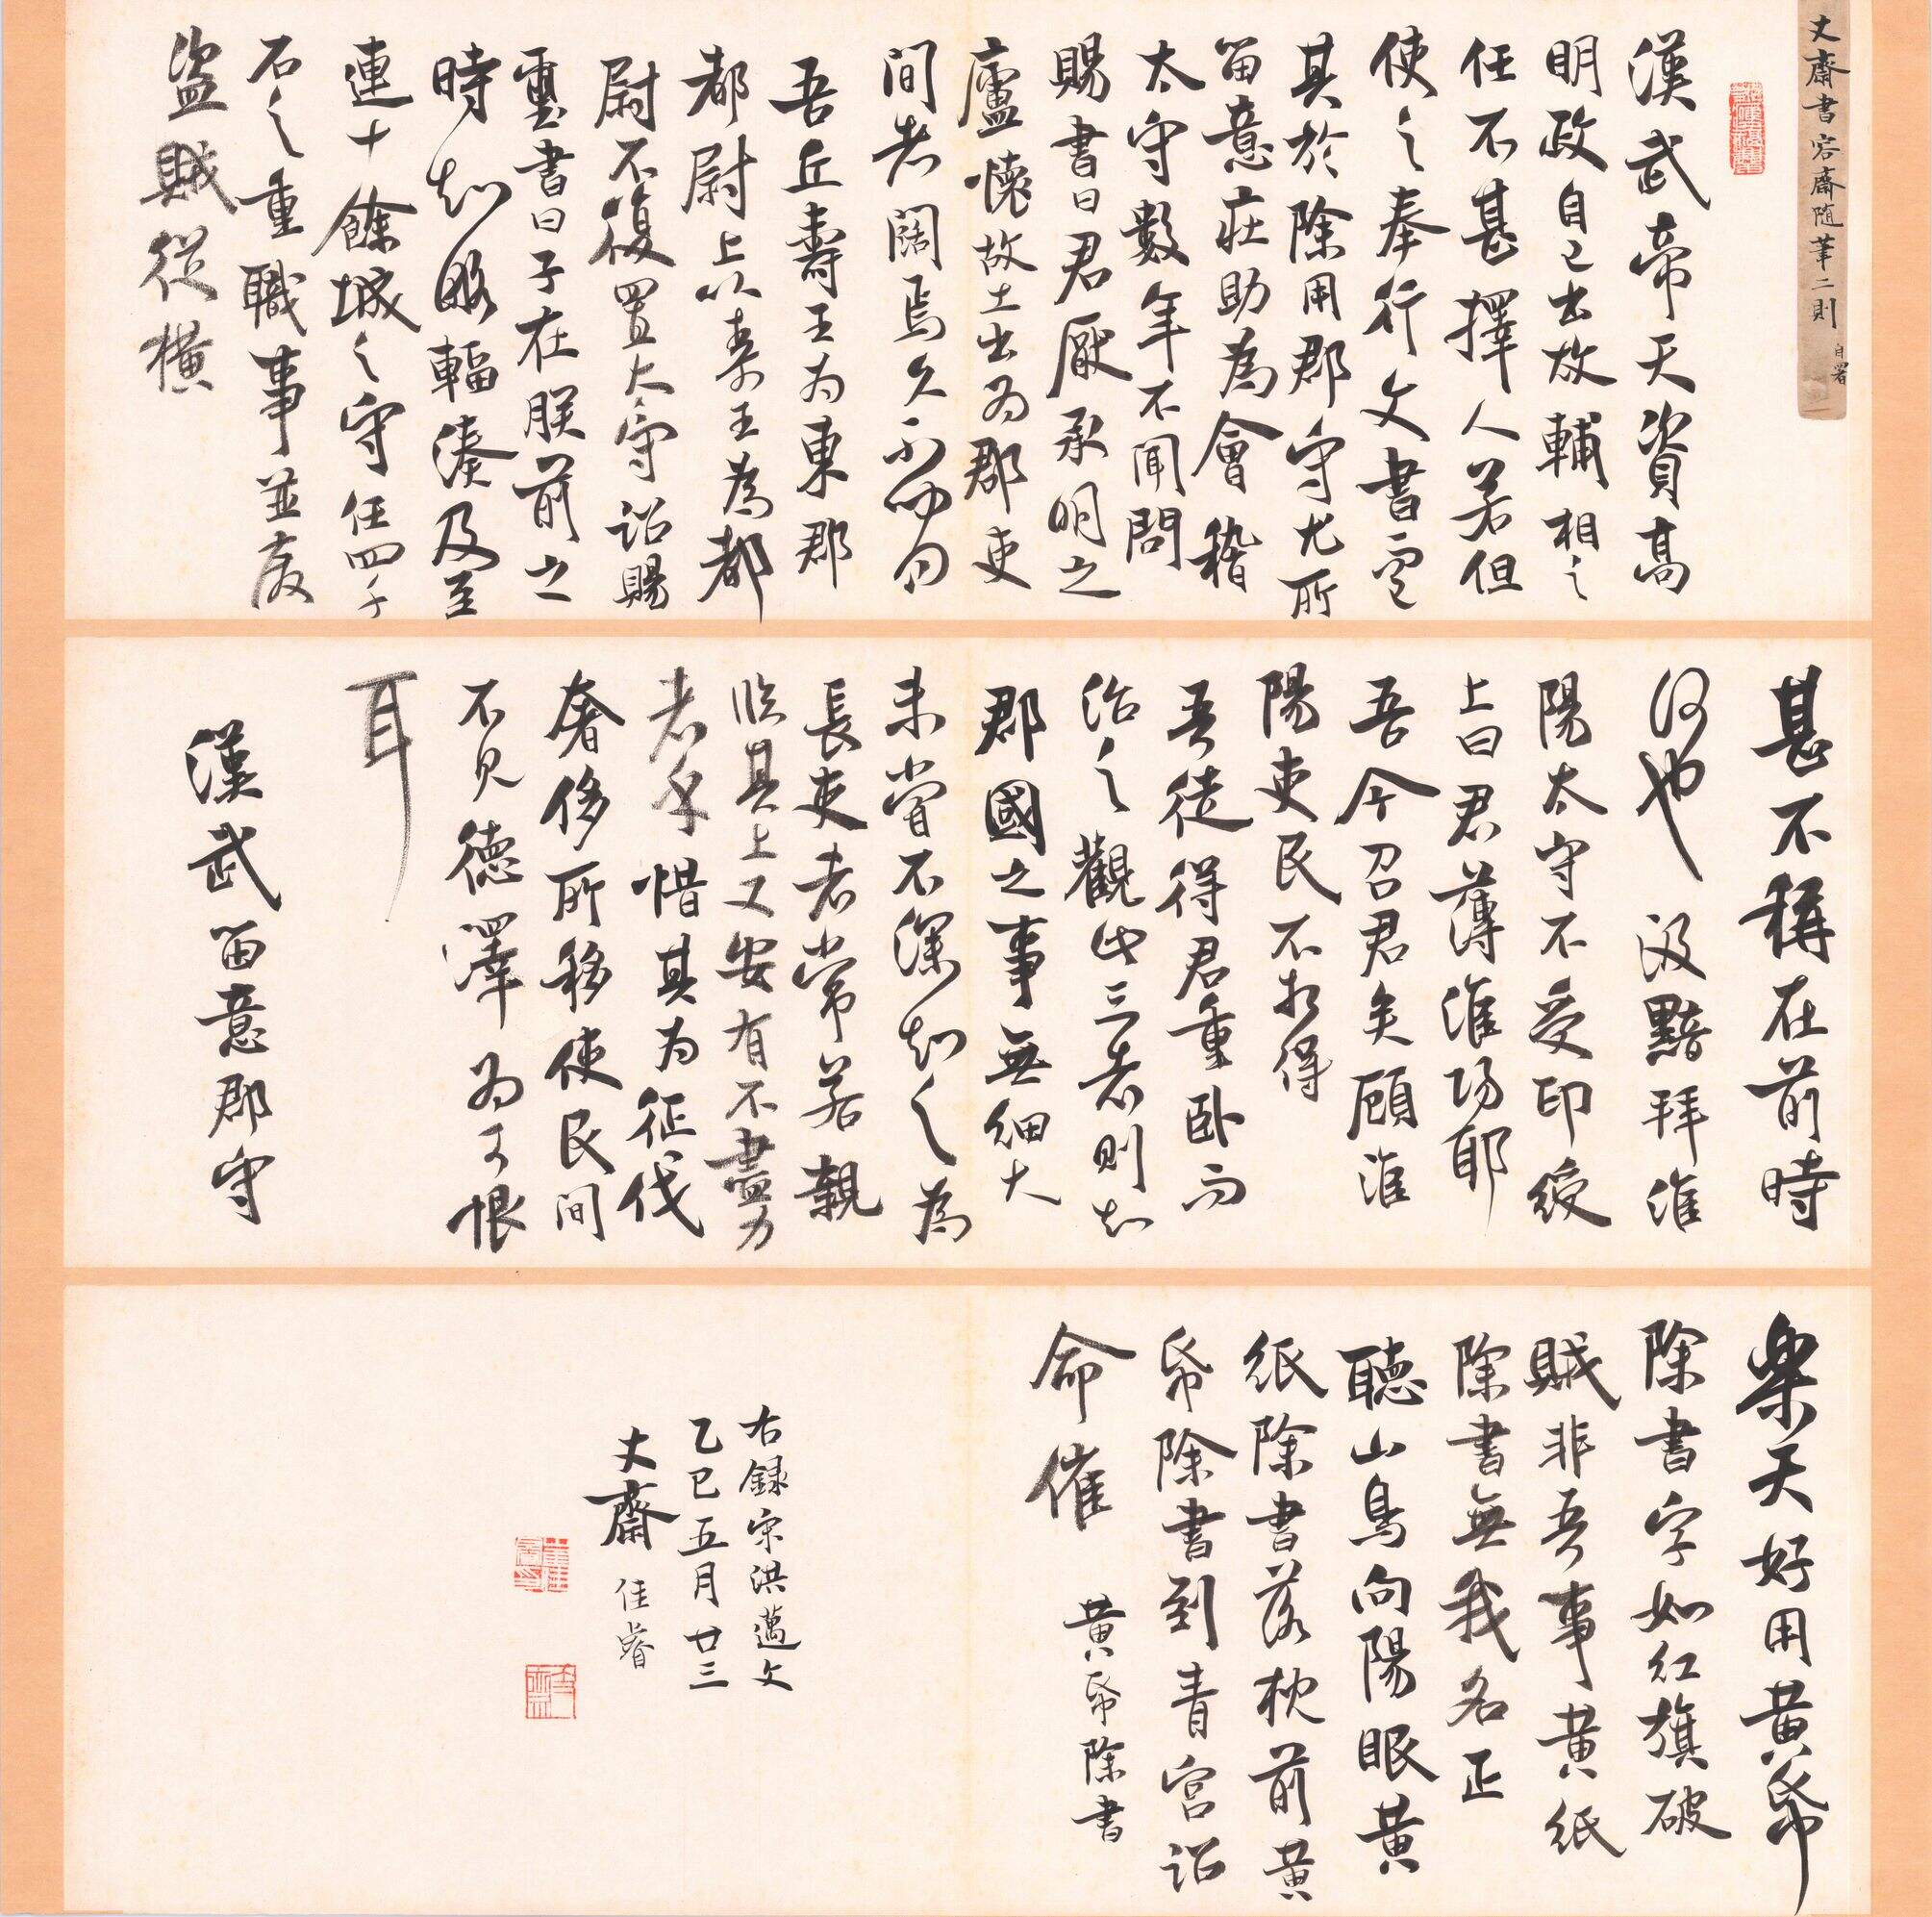 丈齋書容齋隨筆二則
自署
漢武帝天資高
明政自己出故輔相之
任不甚擇人若但
使之奉行文書而已
其於除用郡守尤所
留意莊助為會稽
太守數年不聞問
賜書曰君厭承明之
廬懷故土出為郡吏
間者闊焉久不聞問
吾丘壽王為東郡
都尉上以壽王為都
尉不復置太守詔賜
璽書曰子在朕前之
時知略輻湊及至
連十餘城之守任四千
石之重職事並廢
盜賊從橫
甚不稱在前時
何也汲黯拜淮
陽太守不受印綬
上曰君薄淮陽耶
吾今召君矣顧淮
陽吏民不相得
吾徒得君重臥而
治之觀此三者則知
郡國之事無細大
未嘗不深知之為
長吏者常若親
臨其上又安有不盡力
者乎惜其為征伐
奢侈所移使民間
不見德澤為可恨
耳
漢武留意郡守
樂天好用黃紙
除書字如紅旗破
賊非吾事黃紙
除書無我名正
聽山鳥向陽眠黃
紙除書落枕前黃
紙除書到青宮詔
命催
黃紙除書
右錄宋洪邁文
乙巳五月廿三
丈齋
佳睿